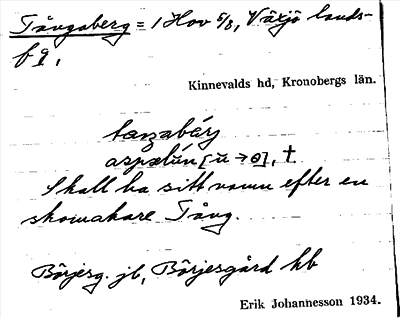 Tångaberg = 1 Hov 5/8, Växjö lands-
f q,
Kinnevalds hd, Kronobergs län.
taŋabärj
aspelún [u → ɵ], †
Skall ha sitt namn efter en
skomakare Tång.
Börjesg. jb, Börjesgård kb
Erik Johannesson 1934.